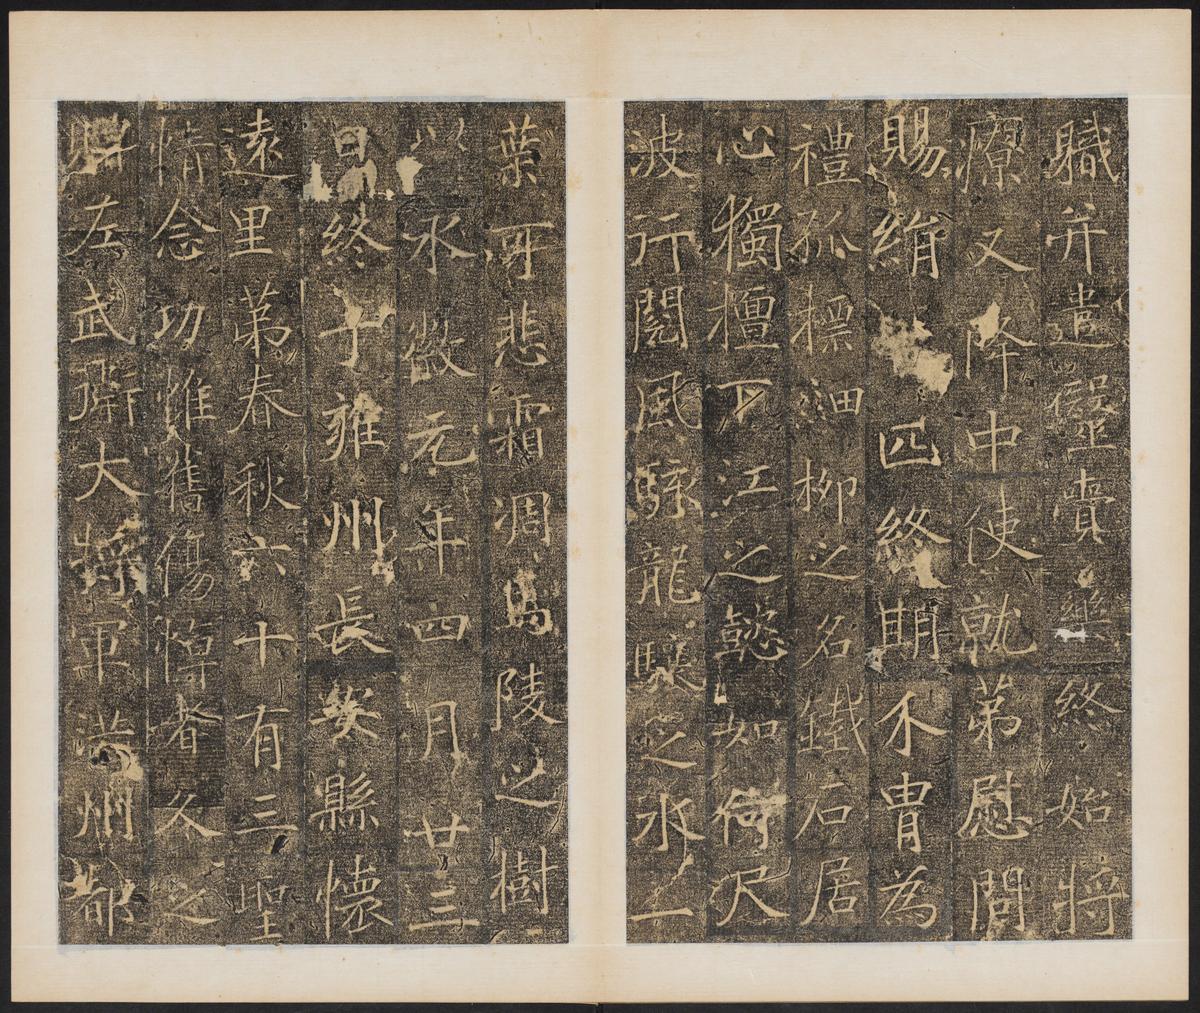 職并遣醫賫藥終始將
療又降中使就第慰問
賜絹匹終期不胄為
禮孤標細柳之名鐵石居
心獨擅下江之懿如何尺
波行閱風駷龍驤之水一
葉可悲霜凋馬陵之樹
以永徽元年四月廿三
日終于雍州長安縣懷
遠里第春秋六十有三聖
情念功惟舊傷悼者久之
贈左武衛大將軍洪州都